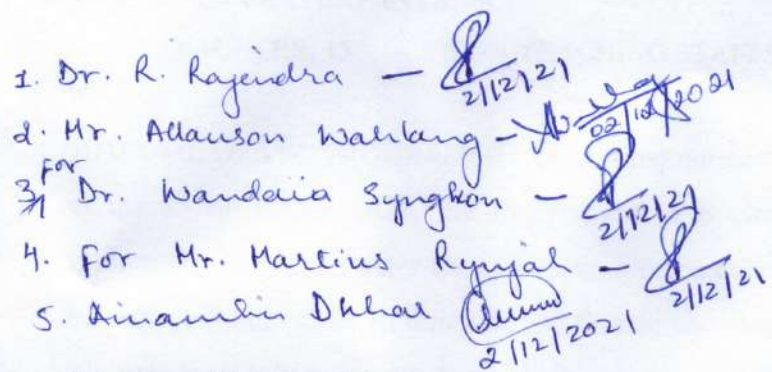 1. Dr. R. Rajendra — 2/12/21
2. Mr. Allauson Wahlang - 02/12/2021
3. for Dr. Wandaia Syngkon — 2/12/21
4. For Mr. Martius Rynjah — 2/12/21
5. Dkhar 2/12/2021